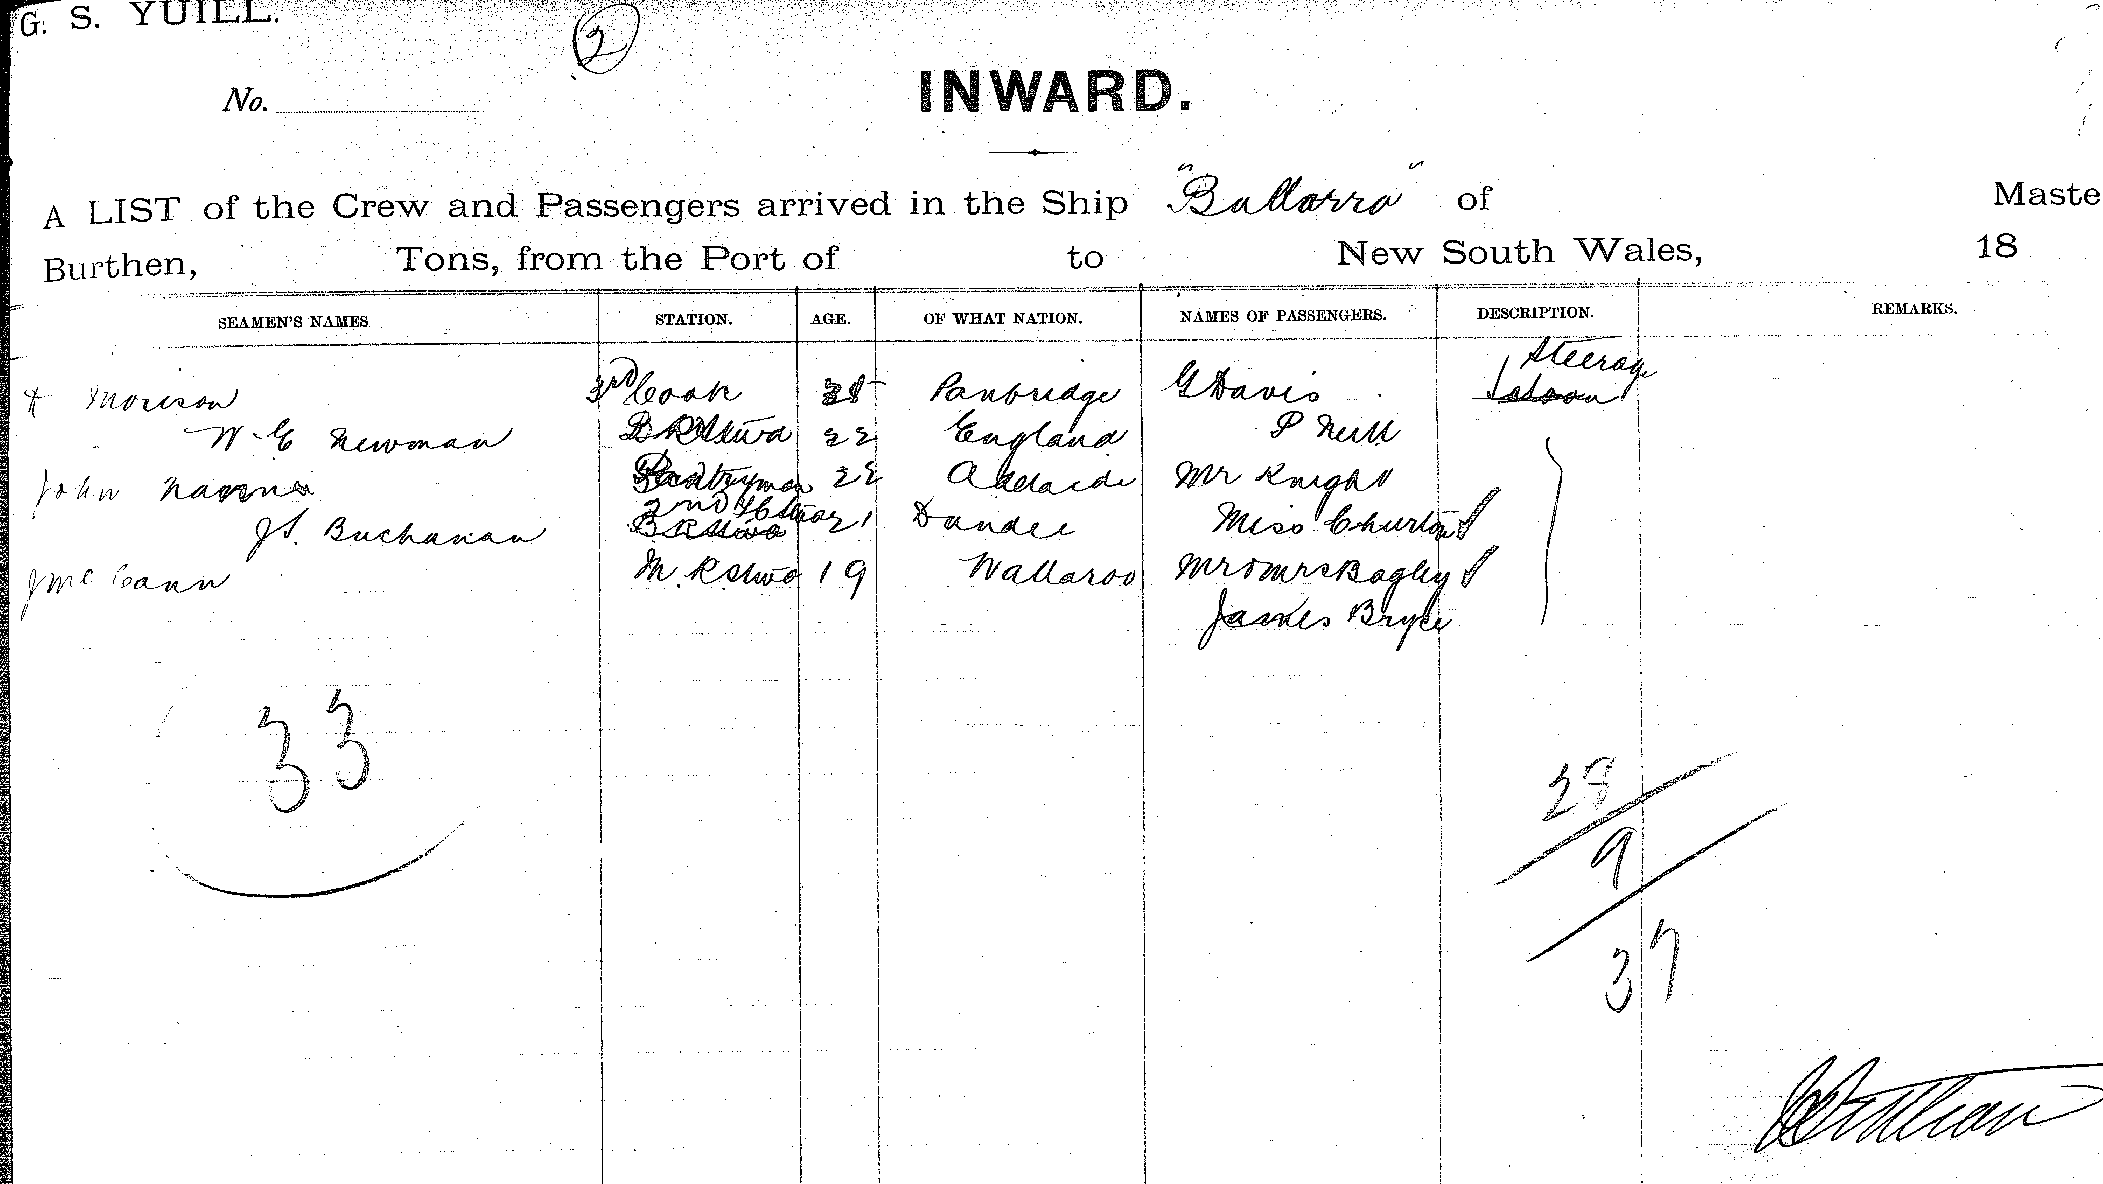 G. S. YUILL.
2
No.
INWARD.
A LIST of the Crew and Passengers arrived in the Ship "Ballarra" of Maste
Burthen, Tons, from the Port of to New South Wales, 18
SEAMEN'S NAMES STATION. AGE. OF WHAT NATION. NAMES OF PASSENGERS. DESCRIPTION. REMARKS.
Steerage
Morison 3rd Cook Panbridge G Davis Saloon
W. E Newman 22 England P Neill
John Pantryman 22 Adelaide Mr Knight
2nd
J S. Buchanan 21 Dundee Miss Churton S
J McCann M. R Stwd 19 Wallaroo Mr & Mrs Bagley S
James Bryce
33
28
9
37